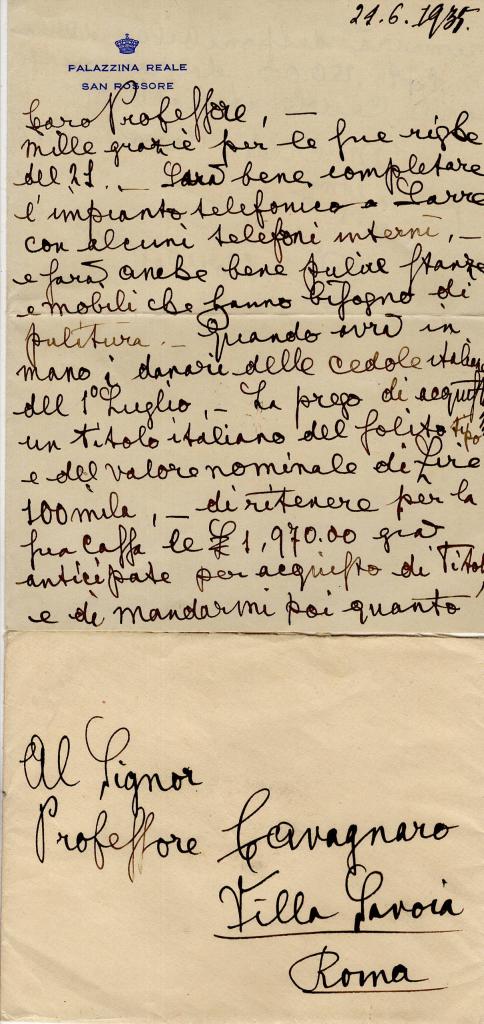 24.6.1935.
PALAZZINA REALE
SAN ROSSORE
Caro Professore, —
mille grazie per le sue righe
del 21. — Sarà bene completare
l'impianto telefonico a Sarre
con alcuni telefoni interni, —
e sarà anche bene pulire stanze
e mobili che hanno bisogno di
pulitura. — Quando avrà in
mano i danari delle cedole italiane
del 1º Luglio, — La prego di
un titolo italiano del solito tipo
e del valore nominale di Lire
100 mila, — di ritenere per la
sua cassa le £ 1,970.00 già
anticipate per acquisto di Titoli
e di mandarmi poi quanto
Al Signor
Professore Cavagnaro
Villa Savoia
Roma